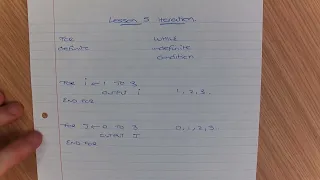 Lesson 5 Iteration.
FOR WHILE
definite indefinite
condition
FOR i ← 1 TO 3
OUTPUT i 1, 2, 3.
END FOR
FOR J ← 0 TO 3
OUTPUT J 0, 1, 2, 3.
END FOR